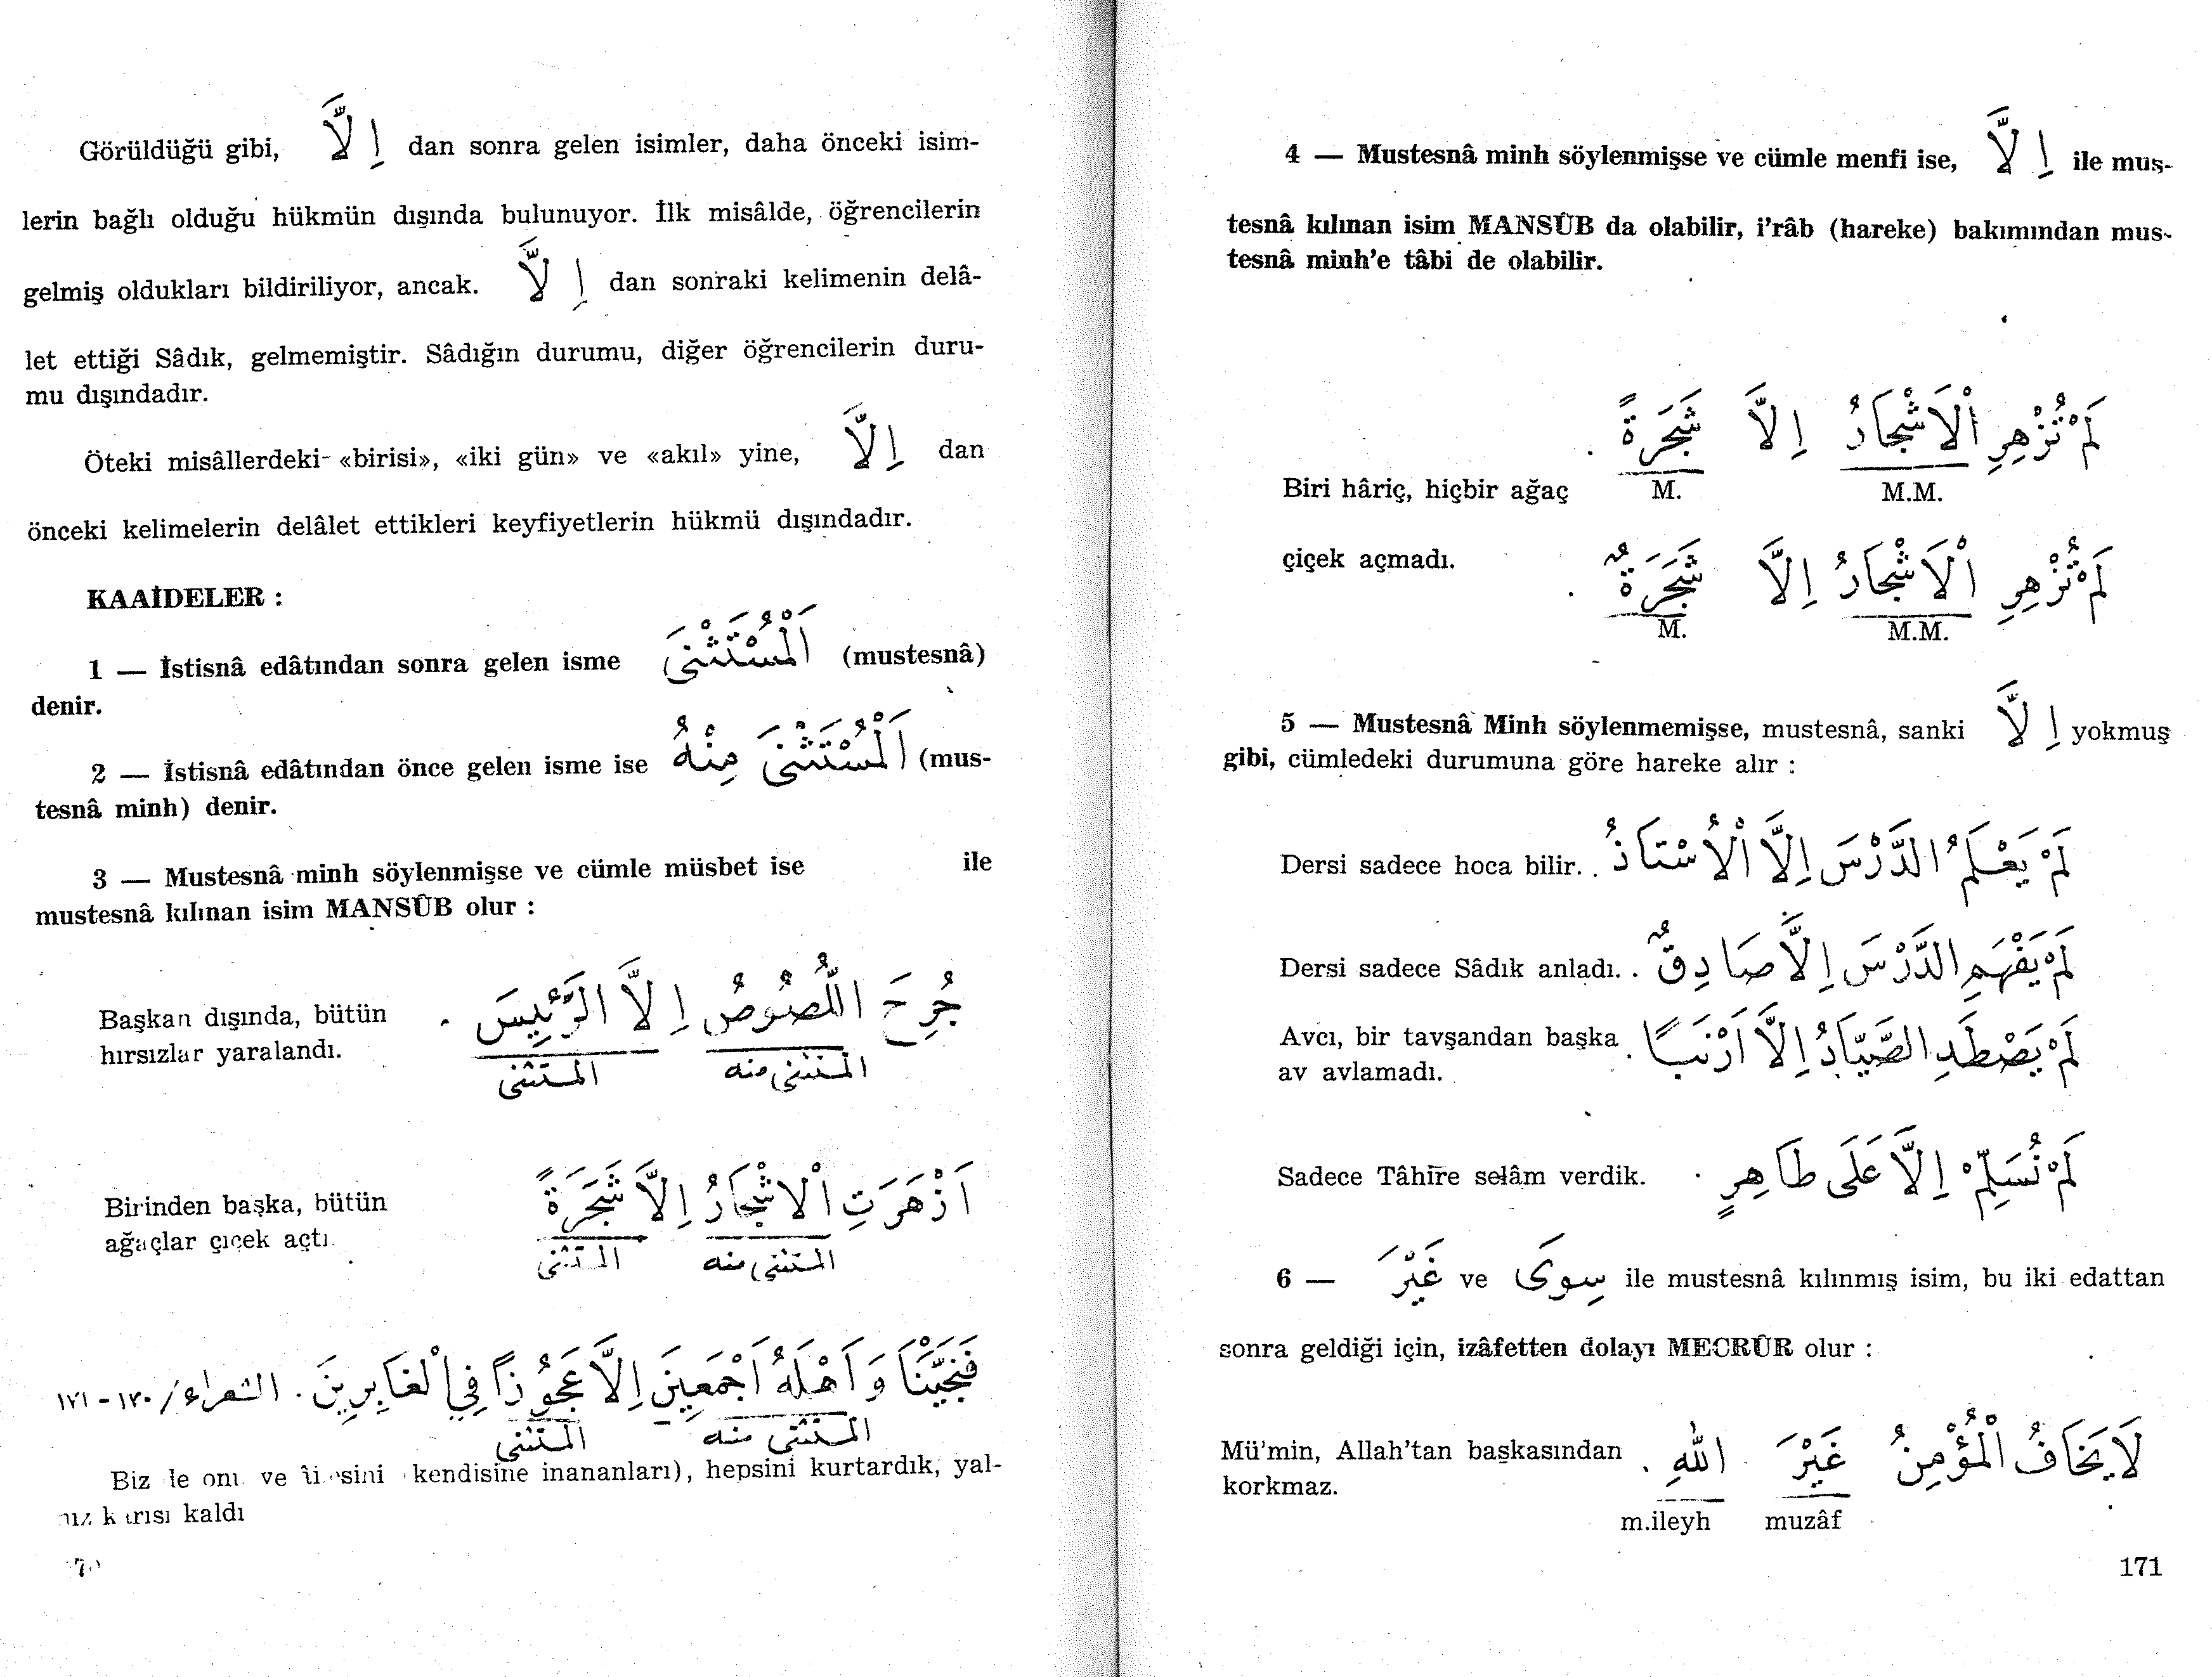 Görüldüğü gibi, اِلَّا dan sonra gelen isimler, daha önceki isim-
lerin bağlı olduğu hükmün dışında bulunuyor. İlk misâlde, öğrencilerin
gelmiş oldukları bildiriliyor, ancak. اِلَّا dan sonraki kelimenin delâ-
let ettiği Sâdık, gelmemiştir. Sâdığın durumu, diğer öğrencilerin duru-
mu dışındadır.
Öteki misâllerdeki «birisi», «iki gün» ve «akıl» yine, اِلَّا dan
önceki kelimelerin delâlet ettikleri keyfiyetlerin hükmü dışındadır.
KAAİDELER :
1 — İstisnâ edâtından sonra gelen isme اَلْمُسْتَثْنَى (mustesnâ)
denir.
2 — İstisnâ edâtından önce gelen isme ise اَلْمُسْتَثْنَى مِنْهُ (mus-
tesnâ minh) denir.
3 — Mustesnâ minh söylenmişse ve cümle müsbet ise ile
mustesnâ kılınan isim MANSÛB olur :
جُرِحَ اللُّصُوصُ اِلَّا الرَّئِيسَ .
المستثنى منه المستثنى
Başkan dışında, bütün
hırsızlar yaralandı.
اَزْهَرَتِ الْاَشْجَارُ اِلَّا شَجَرَةً
المستثنى منه المستثنى
Birinden başka, bütün
ağaçlar çiçek açtı.
فَنَجَّيْنَاهُ وَاَهْلَهُ اَجْمَعِينَ اِلَّا عَجُوزًا فِي الْغَابِرِينَ . الشعراء / ١٧٠ - ١٧١
المستثنى منه المستثنى
Biz de onu ve âilesini kendisine inananları), hepsini kurtardık, yal-
nız karısı kaldı
4 — Mustesnâ minh söylenmişse ve cümle menfi ise, اِلَّا ile mus-
tesnâ kılınan isim MANSÛB da olabilir, i'râb (hareke) bakımından mus-
tesnâ minh'e tâbi de olabilir.
لَمْ تُزْهِرِ الْاَشْجَارُ اِلَّا شَجَرَةً .
Biri hâriç, hiçbir ağaç M. M.M.
لَمْ تُزْهِرِ الْاَشْجَارُ اِلَّا شَجَرَةٌ .
çiçek açmadı.
M. M.M.
5 — Mustesnâ Minh söylenmemişse, mustesnâ, sanki اِلَّا yokmuş
gibi, cümledeki durumuna göre hareke alır :
Dersi sadece hoca bilir. . لَمْ يَعْلَمُ الدَّرْسَ اِلَّا الْاُسْتَاذُ
Dersi sadece Sâdık anladı. . لَمْ يَفْهَمِ الدَّرْسَ اِلَّا صَادِقٌ
Avcı, bir tavşandan başka . لَمْ يَصْطَدِ الصَّيَّادُ اِلَّا اَرْنَبًا
av avlamadı.
Sadece Tâhîre selâm verdik. . لَمْ نُسَلِّمْ اِلَّا عَلَى طَاهِرٍ
6 — غَيْرَ ve سِوَى ile mustesnâ kılınmış isim, bu iki edattan
sonra geldiği için, izâfetten dolayı MECRÛR olur :
Mü'min, Allah'tan başkasından . لَا يَخَافُ الْمُؤْمِنُ غَيْرَ اللهِ
korkmaz.
m.ileyh muzâf
171